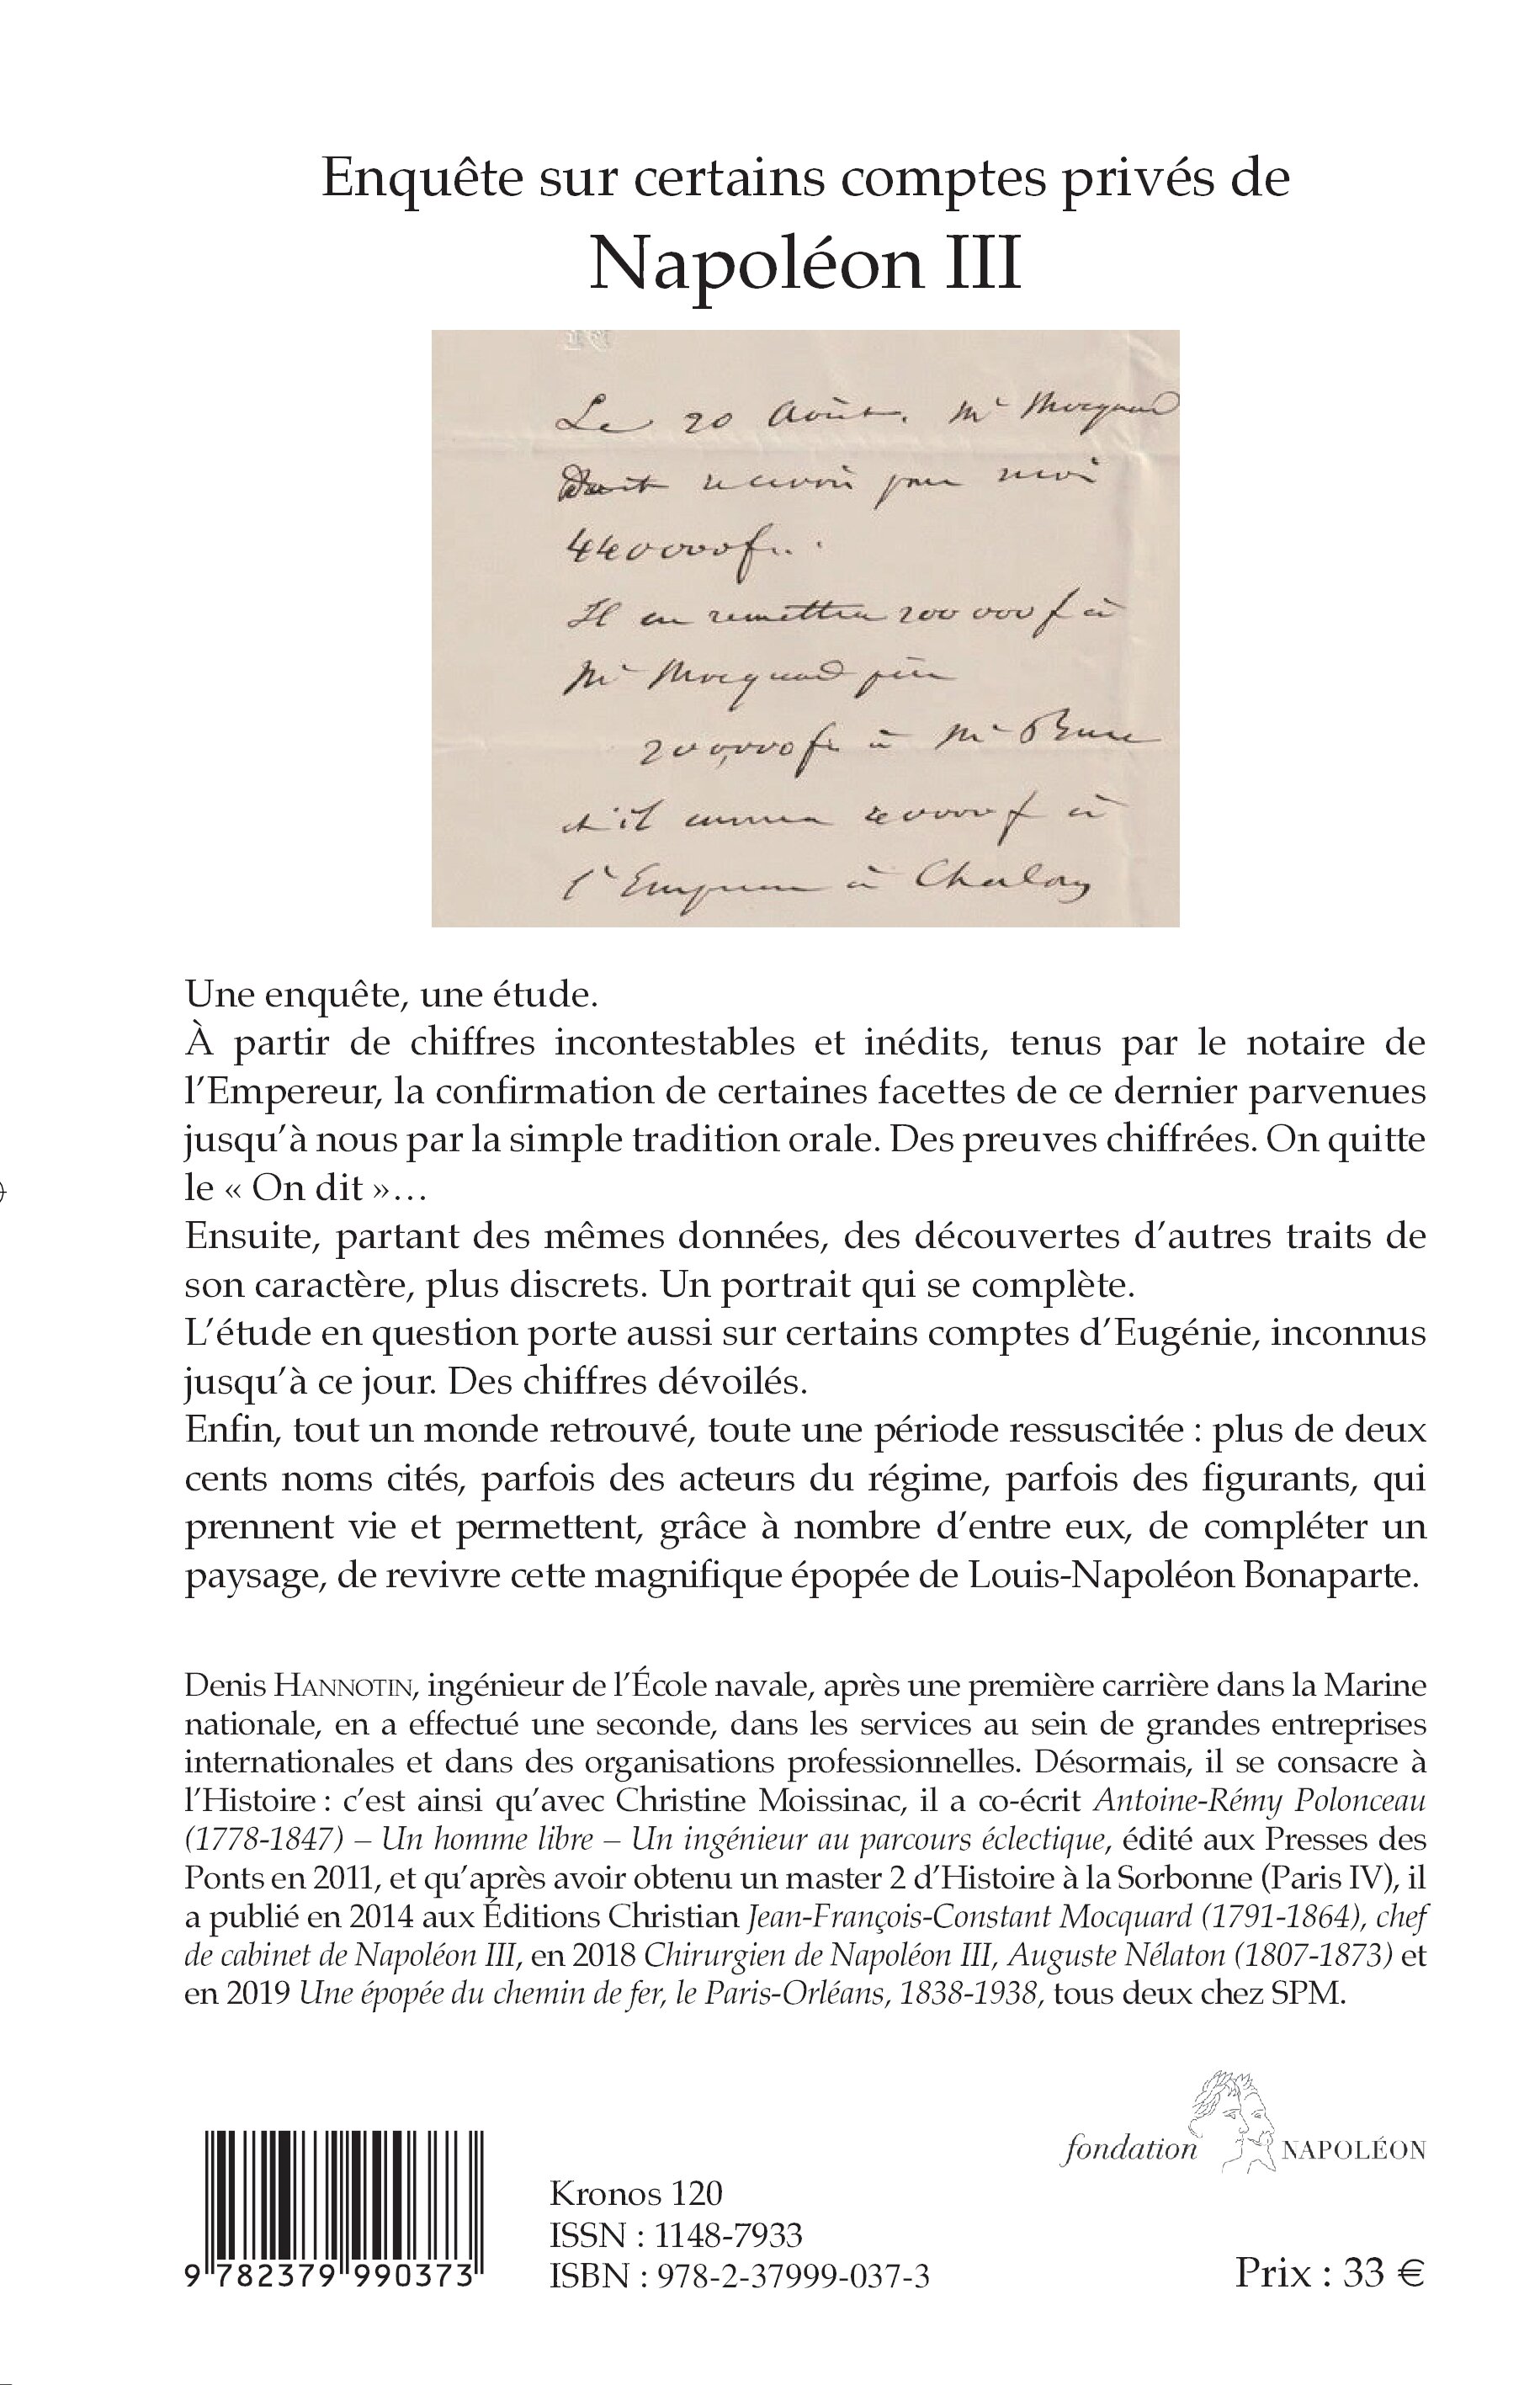 Enquête sur certains comptes privés de
Napoléon III
Le 20 Août. Mr Mocquard
Doit recevoir pour moi
440000 fr.
Il en remettra 200 000 f à
Mr Mocquard père
200,000 fr à Mr Bure
et il enverra 40000 f à
l'Empereur à Chalons
Une enquête, une étude.
À partir de chiffres incontestables et inédits, tenus par le notaire de
l’Empereur, la confirmation de certaines facettes de ce dernier parvenues
jusqu’à nous par la simple tradition orale. Des preuves chiffrées. On quitte
le « On dit »…
Ensuite, partant des mêmes données, des découvertes d’autres traits de
son caractère, plus discrets. Un portrait qui se complète.
L’étude en question porte aussi sur certains comptes d’Eugénie, inconnus
jusqu’à ce jour. Des chiffres dévoilés.
Enfin, tout un monde retrouvé, toute une période ressuscitée : plus de deux
cents noms cités, parfois des acteurs du régime, parfois des figurants, qui
prennent vie et permettent, grâce à nombre d’entre eux, de compléter un
paysage, de revivre cette magnifique épopée de Louis-Napoléon Bonaparte.
Denis HANNOTIN, ingénieur de l’École navale, après une première carrière dans la Marine
nationale, en a effectué une seconde, dans les services au sein de grandes entreprises
internationales et dans des organisations professionnelles. Désormais, il se consacre à
l’Histoire : c’est ainsi qu’avec Christine Moissinac, il a co-écrit Antoine-Rémy Polonceau
(1778-1847) – Un homme libre – Un ingénieur au parcours éclectique, édité aux Presses des
Ponts en 2011, et qu’après avoir obtenu un master 2 d’Histoire à la Sorbonne (Paris IV), il
a publié en 2014 aux Éditions Christian Jean-François-Constant Mocquard (1791-1864), chef
de cabinet de Napoléon III, en 2018 Chirurgien de Napoléon III, Auguste Nélaton (1807-1873) et
en 2019 Une épopée du chemin de fer, le Paris-Orléans, 1838-1938, tous deux chez SPM.
fondation NAPOLÉON
Kronos 120
ISSN : 1148-7933
ISBN : 978-2-37999-037-3
9 782379 990373
Prix : 33 €